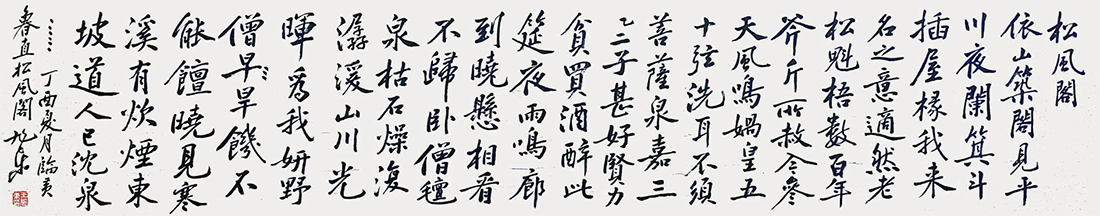 松風閣
依山築閣見平
川夜闌箕斗
插屋椽我来
名之意適然老
松魁梧數百年
斧斤所赦今參
天風鳴媧皇五
十弦洗耳不須
菩薩泉嘉三
二子甚好賢力
貧買酒醉此
筵夜雨鳴廊
到曉懸相看
不歸卧僧氊
泉枯石燥復
潺湲山川光
暉為我妍野
僧早旱饑不
能饘曉見寒
溪有炊煙東
坡道人已沈泉
……丁酉夏月臨黃
魯直松風閣